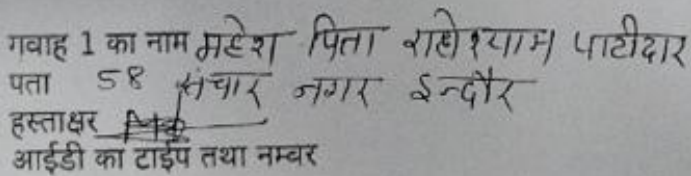 गवाह 1 का नाम महेश पिता राधेश्याम पाटीदार
पता 58 संचार नगर इन्दौर
हस्ताक्षर
आईडी का टाईप तथा नम्वर